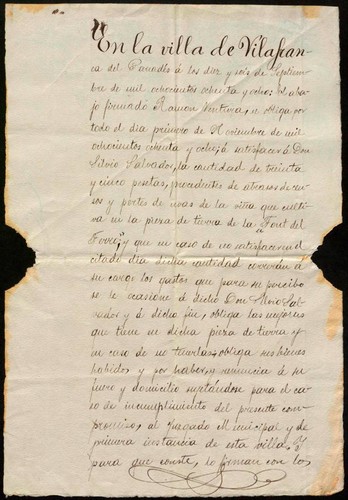 En la villa de Vilafran-
ca del Panadés á los diez y seis de Septiem-
bre de mil ochocientos ochenta y ocho; el aba-
jo firmado Ramon Ventura, se obliga por
todo el dia primero de Noviembre de mil
ochocientos ochenta y ocho, á satisfacer á Don
Silvio Salvador, la cantidad de treinta
y cinco pesetas, procedentes de atrasos de cen-
sos y portes de uvas de la viña que culti-
va en la pieza de tierra de la "Font del
Ferro", y que en caso de no satisfacer en el
citado dia dicha cantidad correrán á
su cargo los gastos que para su percibo
se le ocasione á dicho Don Silvio Sal-
vador y á dicho fin, obliga las mejores
que tiene en dicha pieza de tierra y
en caso de no tenerlas, obliga sus bienes
habidos y por haber, y renuncia á su
fuero y domicilio sujetándose para el ca-
so de incumplimiento del presente com-
promiso, al Juzgado Municipal y de
primera instancia de esta villa. Y
para que conste, lo firman con los